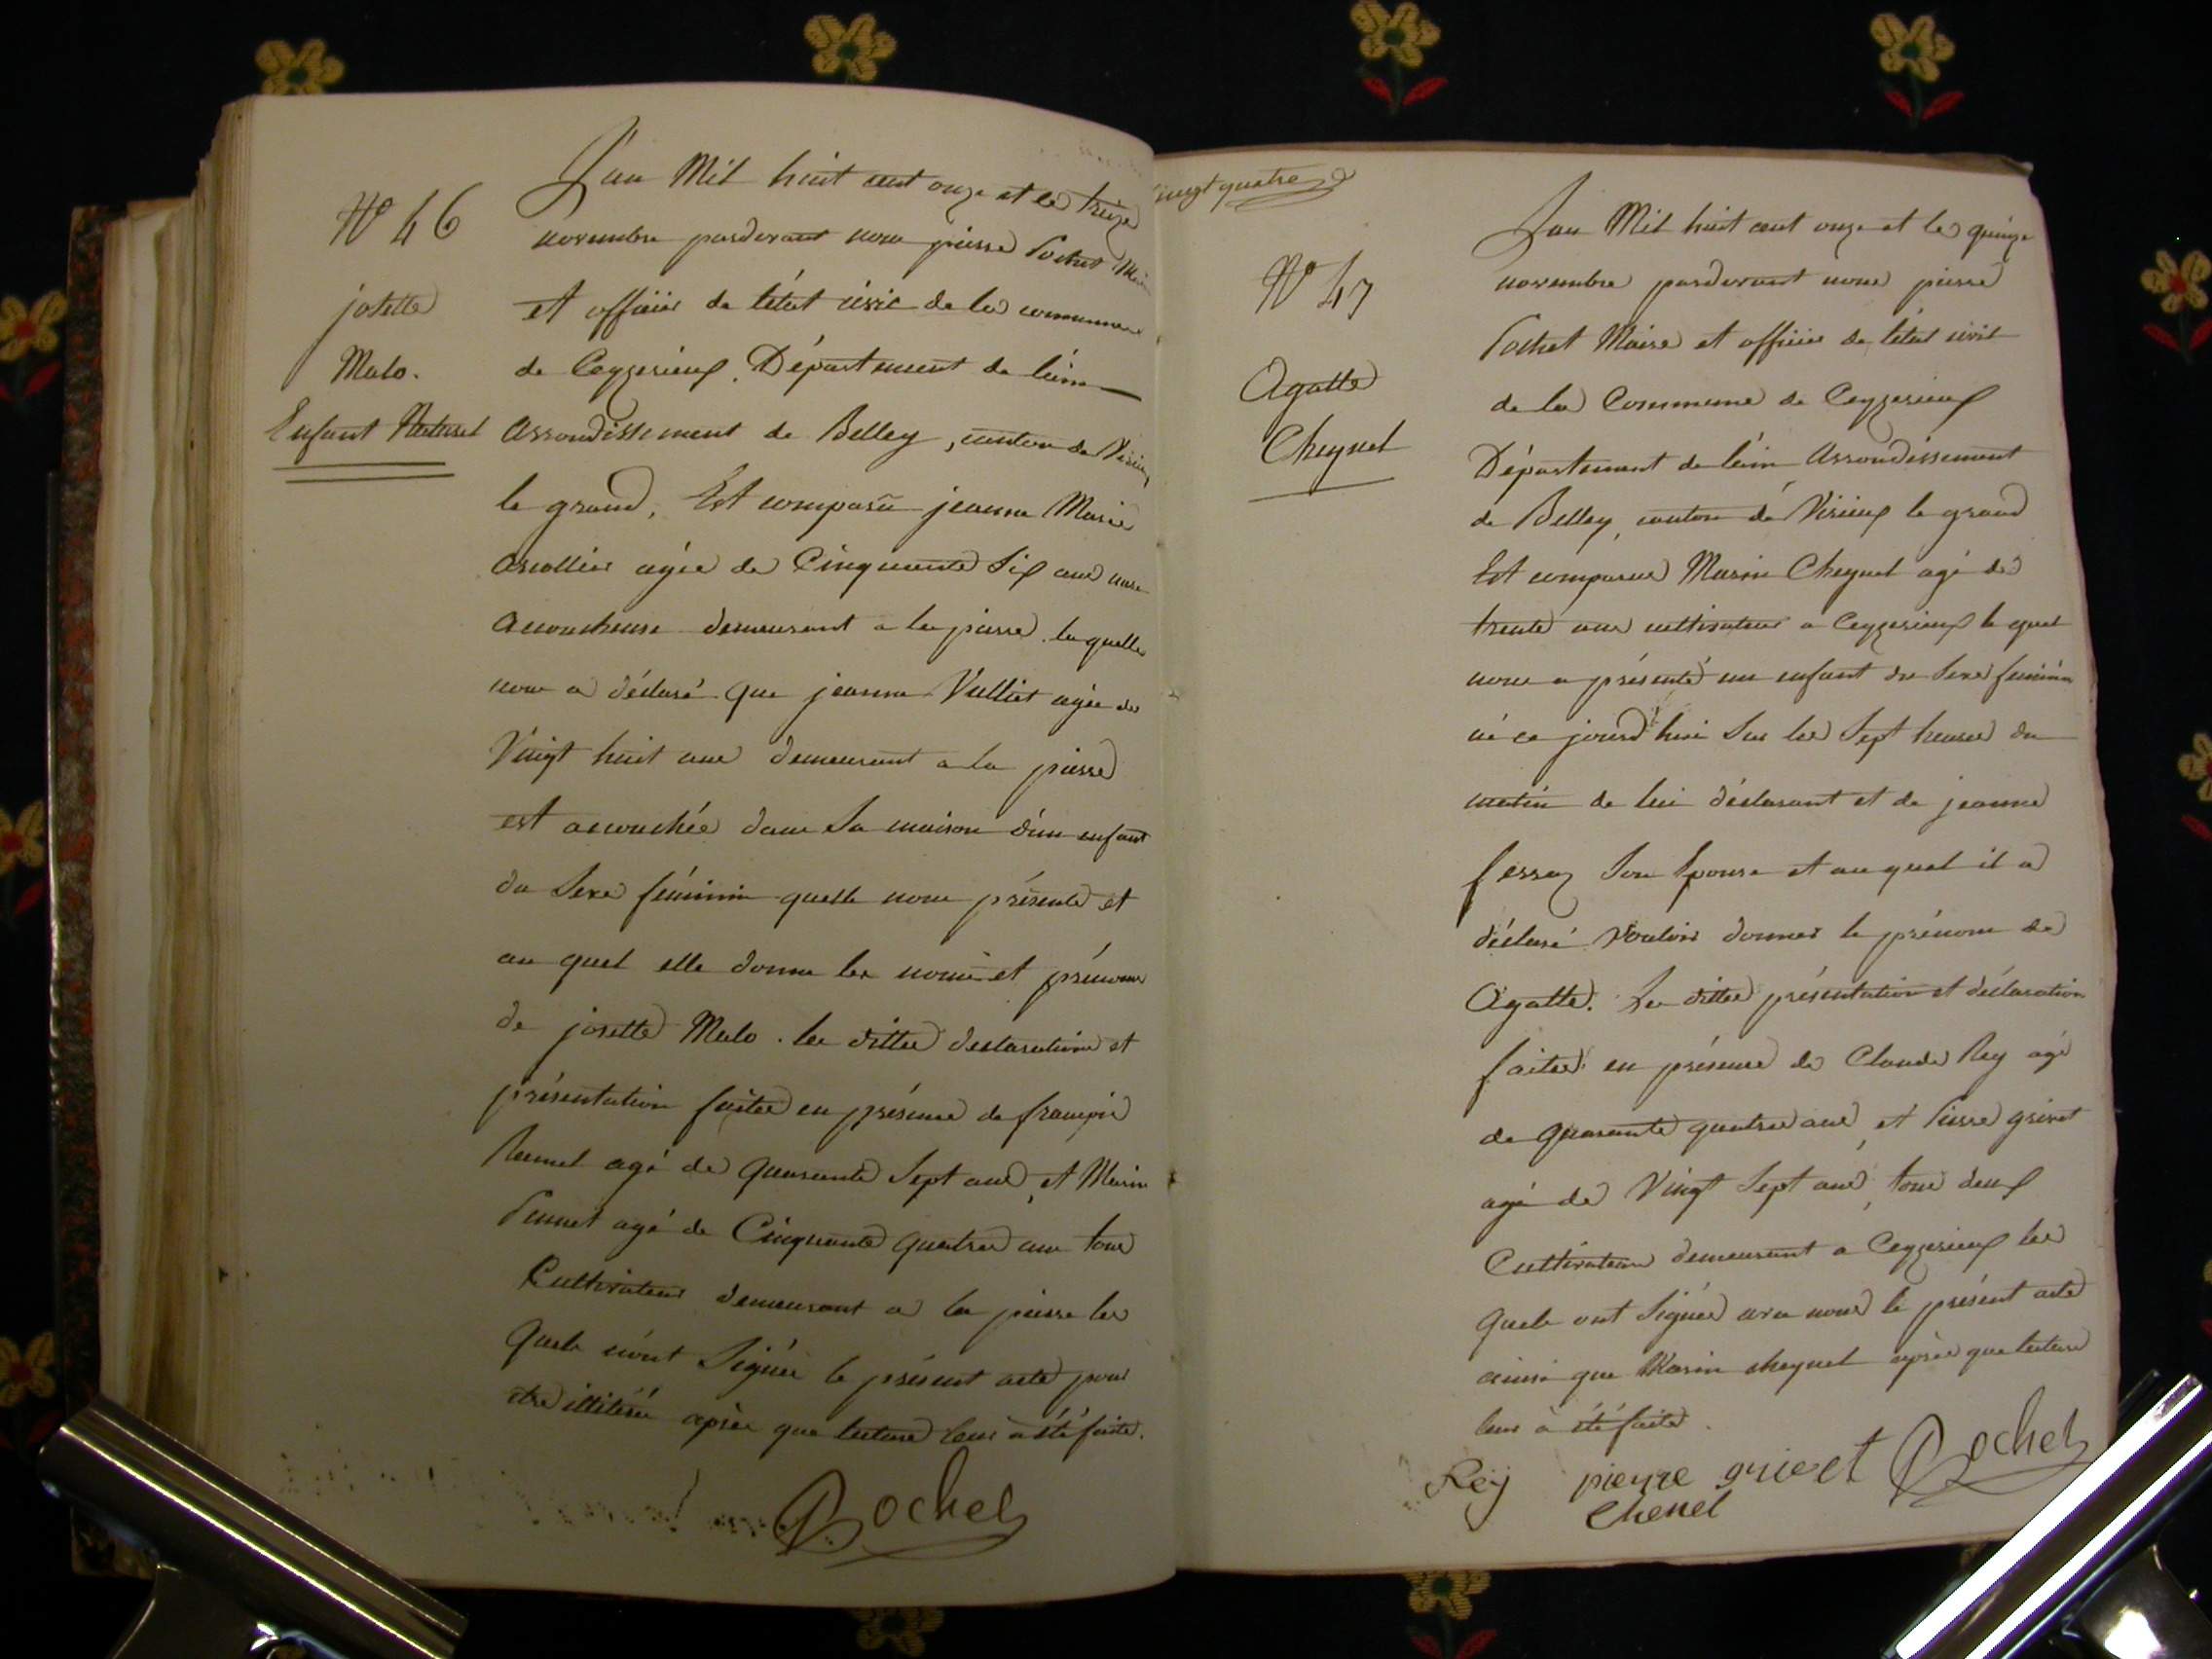 N° 46
josette
Malo.
Enfant Naturel
L'an Mil huit cent onze et le treize
novembre pardevant nous pierre Pochet Maire
et officier de l'état civil de la commune
de Ceyzerieux. Département de l'ain
Arrondissement de Belley, canton de Virieux
le grand, Est comparu jeanne Marie
agée de Cinquante Six ans
accoucheuse demeurant a la pierre. la quelle
nous a déclaré que jeanne Vulliet agée de
Vingt huit ans demeurant a la pierre
est accouchée dans Sa maison d'un enfant
du Sexe féminin quelle nous présente et
au quel elle donne les noms et prénoms
de josette Malo. les dittes declaration et
présentation faites en présence de françois
agé de quarante Sept ans, et Marin
agé de Cinquante quatre ans tous
Cultivateurs demeurant a la pierre les
quels n'ont Signés le présent acte pour
etre illitéré après que lecture leur à été faite.
Pochet
vingt quatre
N° 47
Agatte
Cheynel
L'an Mil huit cent onze et le quinze
novembre pardevant nous pierre
Pochet Maire et officier de l'état civil
de la Commune de Ceyzerieux
Département de l'ain Arrondissement
de Belley, canton de Virieux le grand
Est comparu Marin Cheynel agé de
trente ans cultivateur a Ceyzerieux le quel
nous a présenté un enfant du Sexe féminin
né ce jourd'hui Sur les Sept heures du
matin de lui déclarant et de jeanne
fessoz Son Epouse et au quel il a
déclaré Vouloir donner le prénom de
Agatte. Les dittes présentation et déclaration
faites en présence de Claude Rey agé
de quarante quatre ans, et Pierre grivet
agé de Vingt Sept ans, tous deux
Cultivateurs demeurant a Ceyzerieux les
quels ont Signés avec nous le présent acte
ainsi que Marin cheynel après que lecture
leur à été faite.
Rey pierre grivet Pochet
Chenel